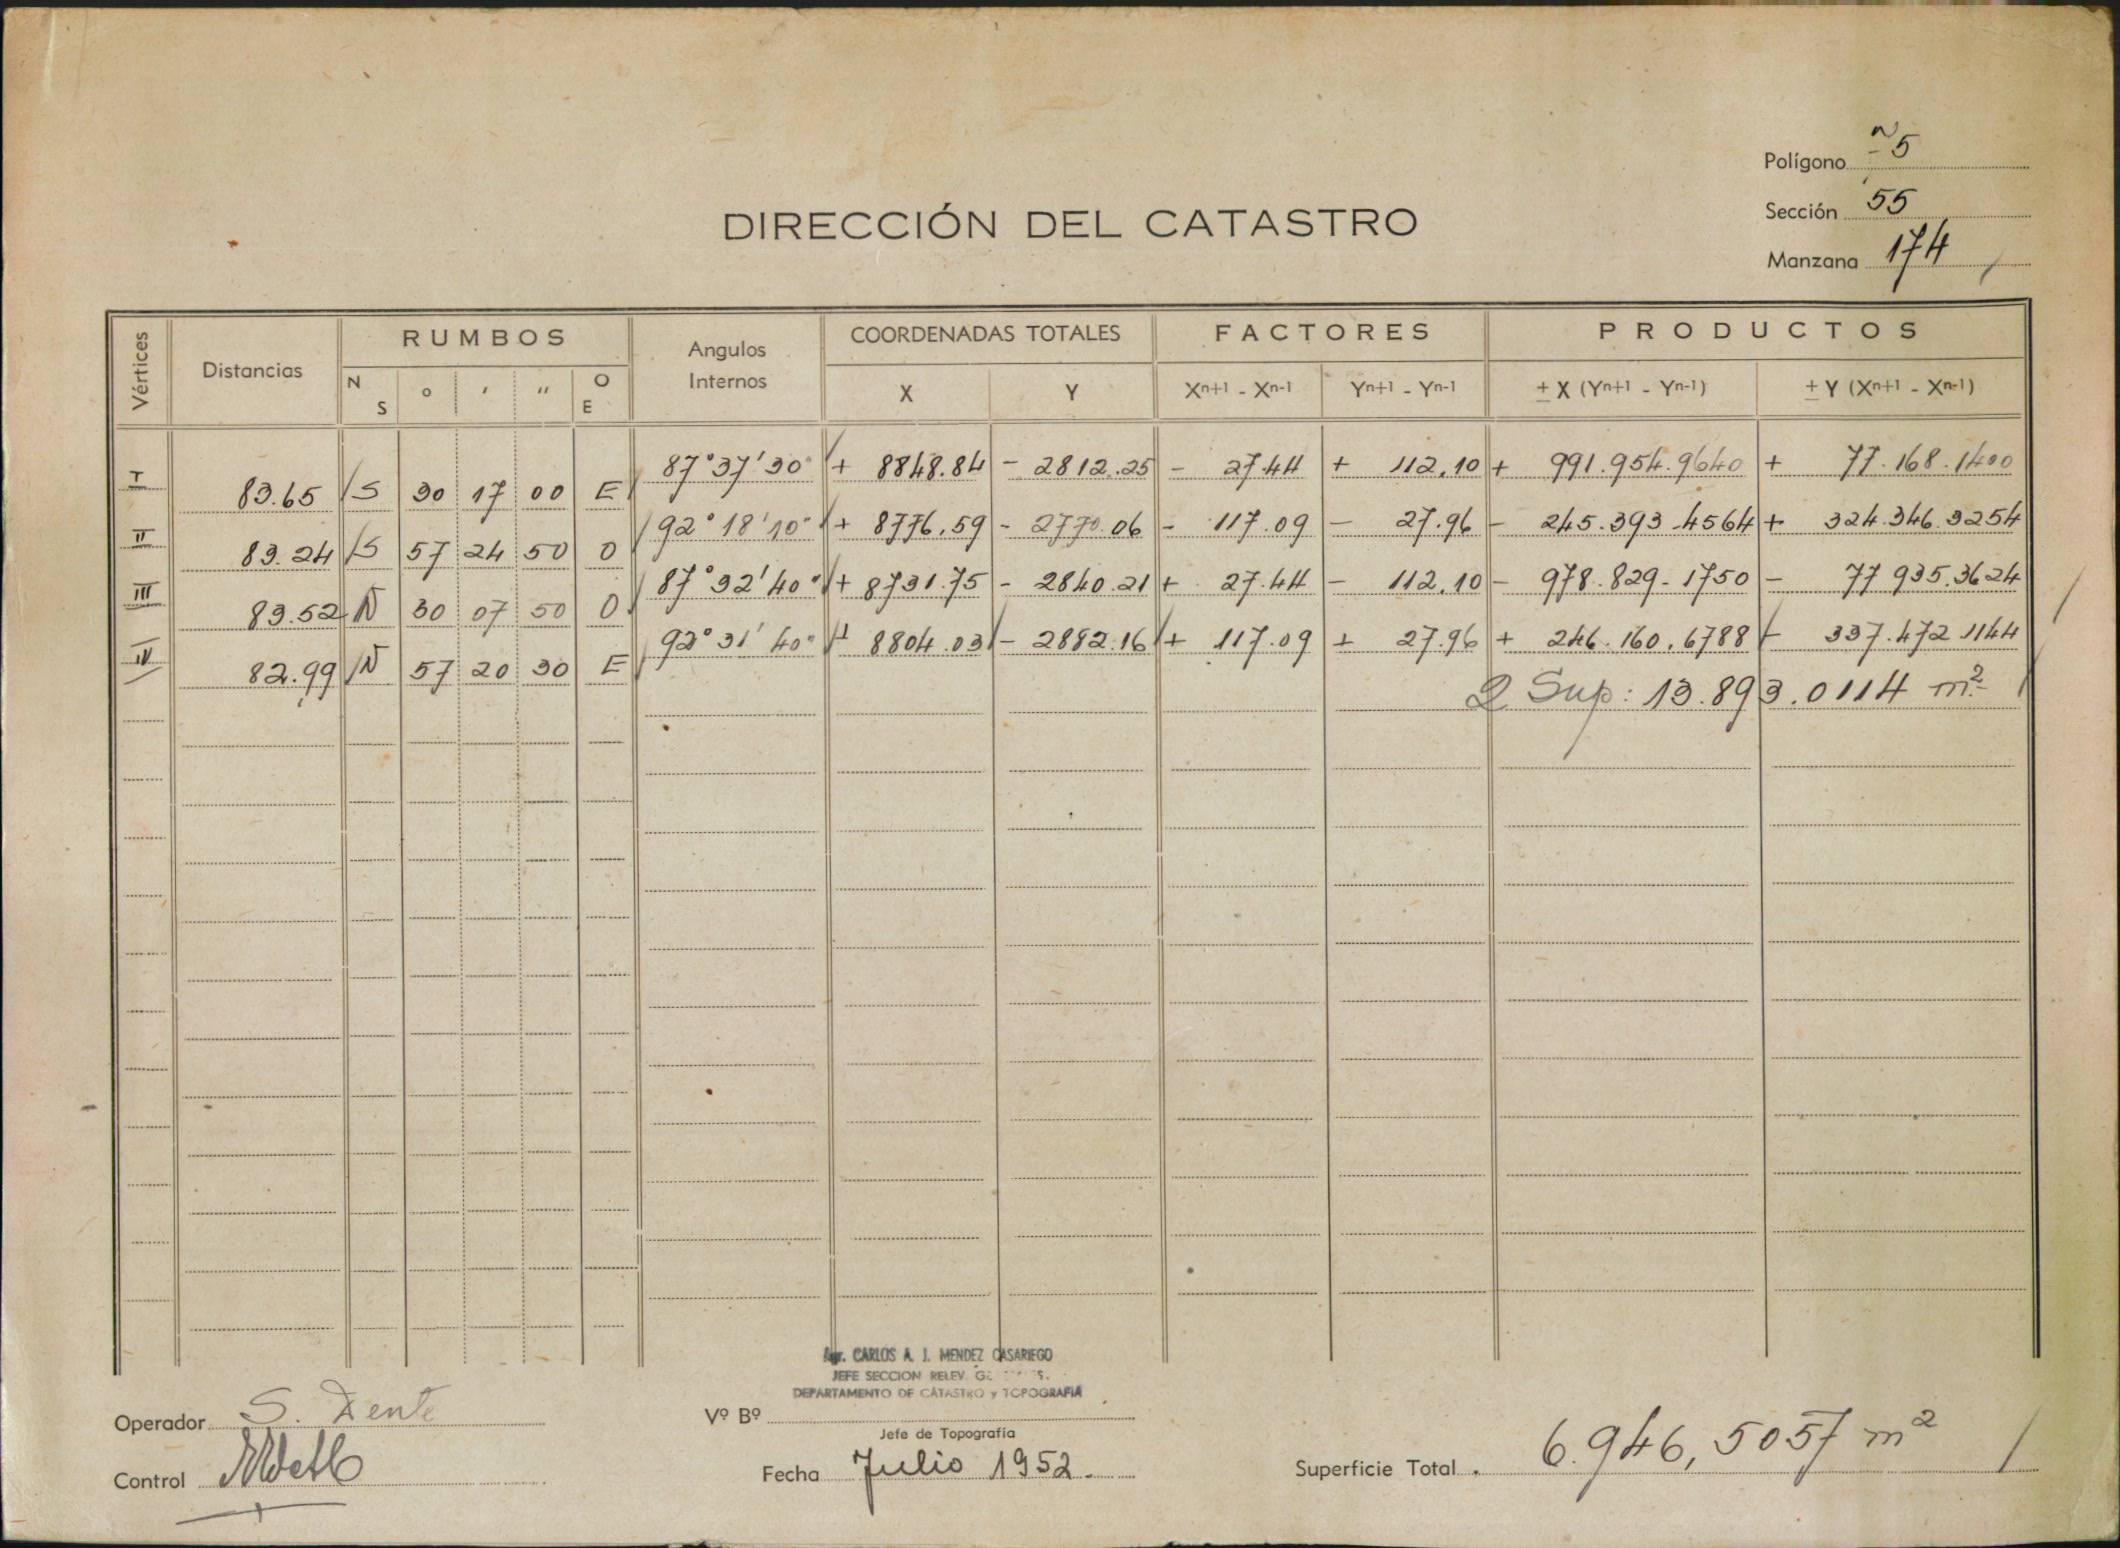 Polígono nº 5
Sección 55
Manzana 174
DIRECCIÓN DEL CATASTRO
Vértices Distancias RUMBOS Angulos Internos COORDENADAS TOTALES FACTORES PRODUCTOS
N S ° ' " O E X Y Xn+1 - Xn-1 Yn+1 - Yn-1 ± X (Yn+1 - Yn-1) ± Y (Xn+1 - Xn-1)
87°37'30" + 8848.84 - 2812.25 - 27.44 + 112.10 + 991.954.9640 + 77.168.1400
I 83.65 S 30 17 00 E
92°18'10" + 8776.59 - 2770.06 - 117.09 - 27.96 - 245.393.4564 + 324.346.3254
II 83.24 S 57 24 50 O
87°32'40" + 8731.75 - 2840.21 + 27.44 - 112.10 - 978.829.1750 - 77935.3624
III 83.52 N 30 07 50 O
92°31'40" + 8804.03 - 2882.16 + 117.09 + 27.96 + 246.160.6788 - 337.472.1144
IV 82.99 N 57 20 30 E
2 Sup: 13.893.0114 m2
Agr. CARLOS A. J. MENDEZ CASARIEGO
JEFE SECCION RELEV.
DEPARTAMENTO DE CATASTRO y TOPOGRAFIA
Operador S. Dente
Vº Bº
Jefe de Topografía
Control
Fecha Julio 1952.
Superficie Total. 6.946,5057 m2